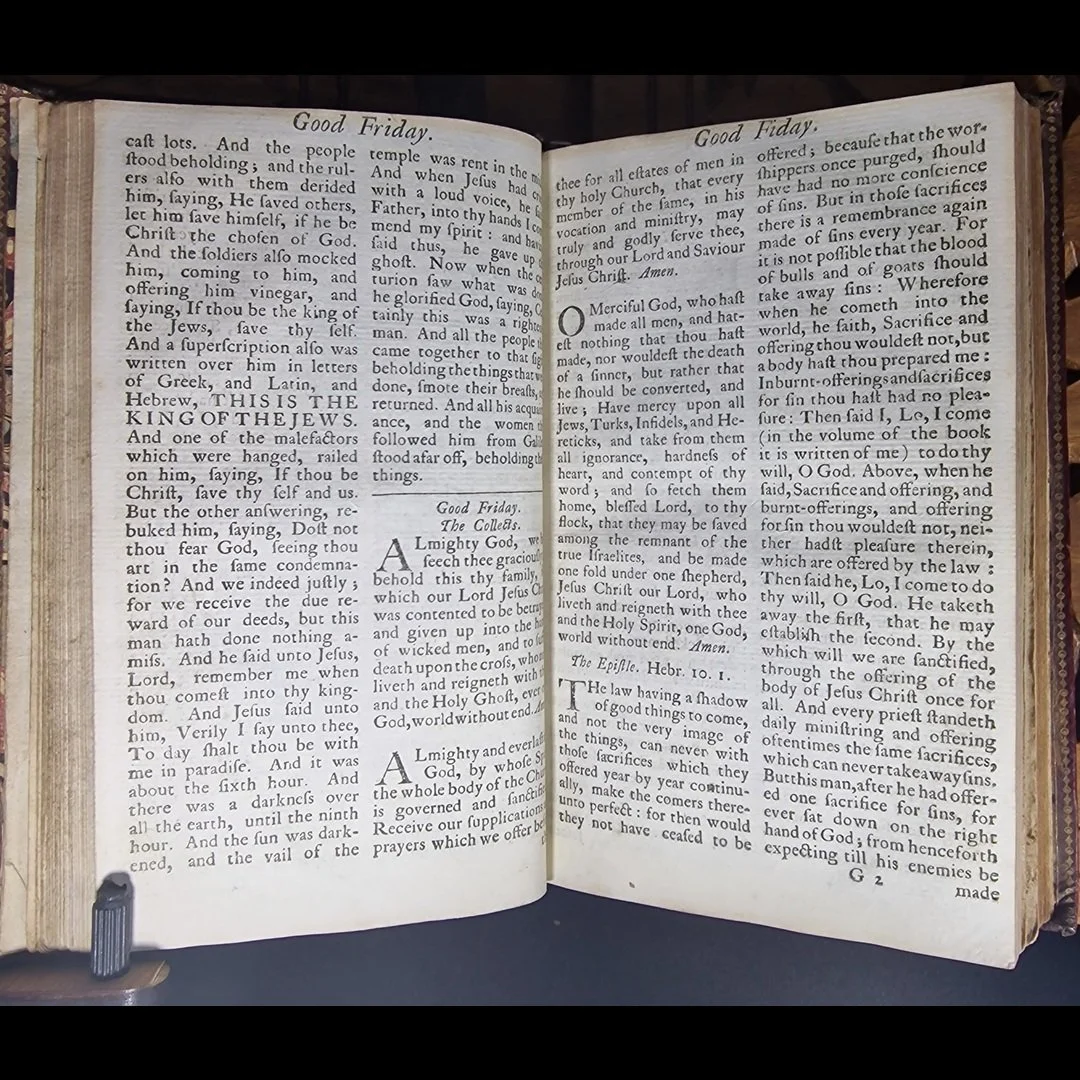 Good Friday.
caſt lots. And the people
ſtood beholding; and the rul-
ers alſo with them derided
him, ſaying, He ſaved others,
let him ſave himſelf, if he be
Chriſt the choſen of God.
And the ſoldiers alſo mocked
him, coming to him, and
offering him vinegar, and
ſaying, If thou be the king of
the Jews, ſave thy ſelf.
And a ſuperſcription alſo was
written over him in letters
of Greek, and Latin, and
Hebrew, THIS IS THE
KING OF THE JEWS.
And one of the malefactors
which were hanged, railed
on him, ſaying, If thou be
Chriſt, ſave thy ſelf and us.
But the other anſwering, re-
buked him, ſaying, Doſt not
thou fear God, ſeeing thou
art in the ſame condemna-
tion? And we indeed juſtly;
for we receive the due re-
ward of our deeds, but this
man hath done nothing a-
miſs. And he ſaid unto Jeſus,
Lord, remember me when
thou comeſt into thy king-
dom. And Jeſus ſaid unto
him, Verily I ſay unto thee,
To day ſhalt thou be with
me in paradiſe. And it was
about the ſixth hour. And
there was a darkneſs over
all the earth, until the ninth
hour. And the ſun was dark-
ened, and the vail of the
temple was rent in the
And when Jeſus had
with a loud voice, he
Father, into thy hands I
mend my ſpirit: and
ſaid thus, he gave up
ghoſt. Now when the
turion ſaw what was
he glorified God, ſaying,
tainly this was a
man. And all the people
came together to that
beholding the things that
done, ſmote their breaſts,
returned. And all his
ance, and the women
followed him from
ſtood afar off, beholding
things.
Good Friday.
The Collects.
ALmighty God, we
ſeech thee
behold this thy family,
which our Lord Jeſus
was contented to be
and given up into the
of wicked men, and to
death upon the croſs,
liveth and reigneth with
and the Holy Ghoſt, ever
God, world without end.
ALmighty and
God, by whoſe
the whole body of the
is governed and
Receive our ſupplications
prayers which we offer
Good Fiday.
thee for all eſtates of men in
thy holy Church, that every
member of the ſame, in his
vocation and miniſtry, may
truly and godly ſerve thee,
through our Lord and Saviour
Jeſus Chriſt. Amen.
O Merciful God, who haſt
made all men, and hat-
eſt nothing that thou haſt
made, nor wouldeſt the death
of a ſinner, but rather that
he ſhould be converted, and
live; Have mercy upon all
Jews, Turks, Infidels, and He-
reticks, and take from them
all ignorance, hardneſs of
heart, and contempt of thy
word; and ſo fetch them
home, bleſſed Lord, to thy
flock, that they may be ſaved
among the remnant of the
true Iſraelites, and be made
one fold under one ſhepherd,
Jeſus Chriſt our Lord, who
liveth and reigneth with thee
and the Holy Spirit, one God,
world without end. Amen.
The Epiſtle. Hebr. 10. 1.
THe law having a ſhadow
of good things to come,
and not the very image of
the things, can never with
thoſe ſacrifices which they
offered year by year continu-
ally, make the comers there-
unto perfect: for then would
they not have ceaſed to be
offered; becauſe that the wor-
ſhippers once purged, ſhould
have had no more conſcience
of ſins. But in thoſe ſacrifices
there is a remembrance again
made of ſins every year. For
it is not poſſible that the blood
of bulls and of goats ſhould
take away ſins: Wherefore
when he cometh into the
world, he ſaith, Sacrifice and
offering thou wouldeſt not, but
a body haſt thou prepared me:
In burnt-offerings and ſacrifices
for ſin thou haſt had no plea-
ſure: Then ſaid I, Lo, I come
(in the volume of the book
it is written of me) to do thy
will, O God. Above, when he
ſaid, Sacrifice and offering, and
burnt-offerings, and offering
for ſin thou wouldeſt not, nei-
ther hadſt pleaſure therein,
which are offered by the law:
Then ſaid he, Lo, I come to do
thy will, O God. He taketh
away the firſt, that he may
eſtabliſh the ſecond. By the
which will we are ſanctified,
through the offering of the
body of Jeſus Chriſt once for
all. And every prieſt ſtandeth
daily miniſtring and offering
oftentimes the ſame ſacrifices,
which can never take away ſins.
But this man, after he had offer-
ed one ſacrifice for ſins, for
ever ſat down on the right
hand of God; from henceforth
expecting till his enemies be
G 2
made